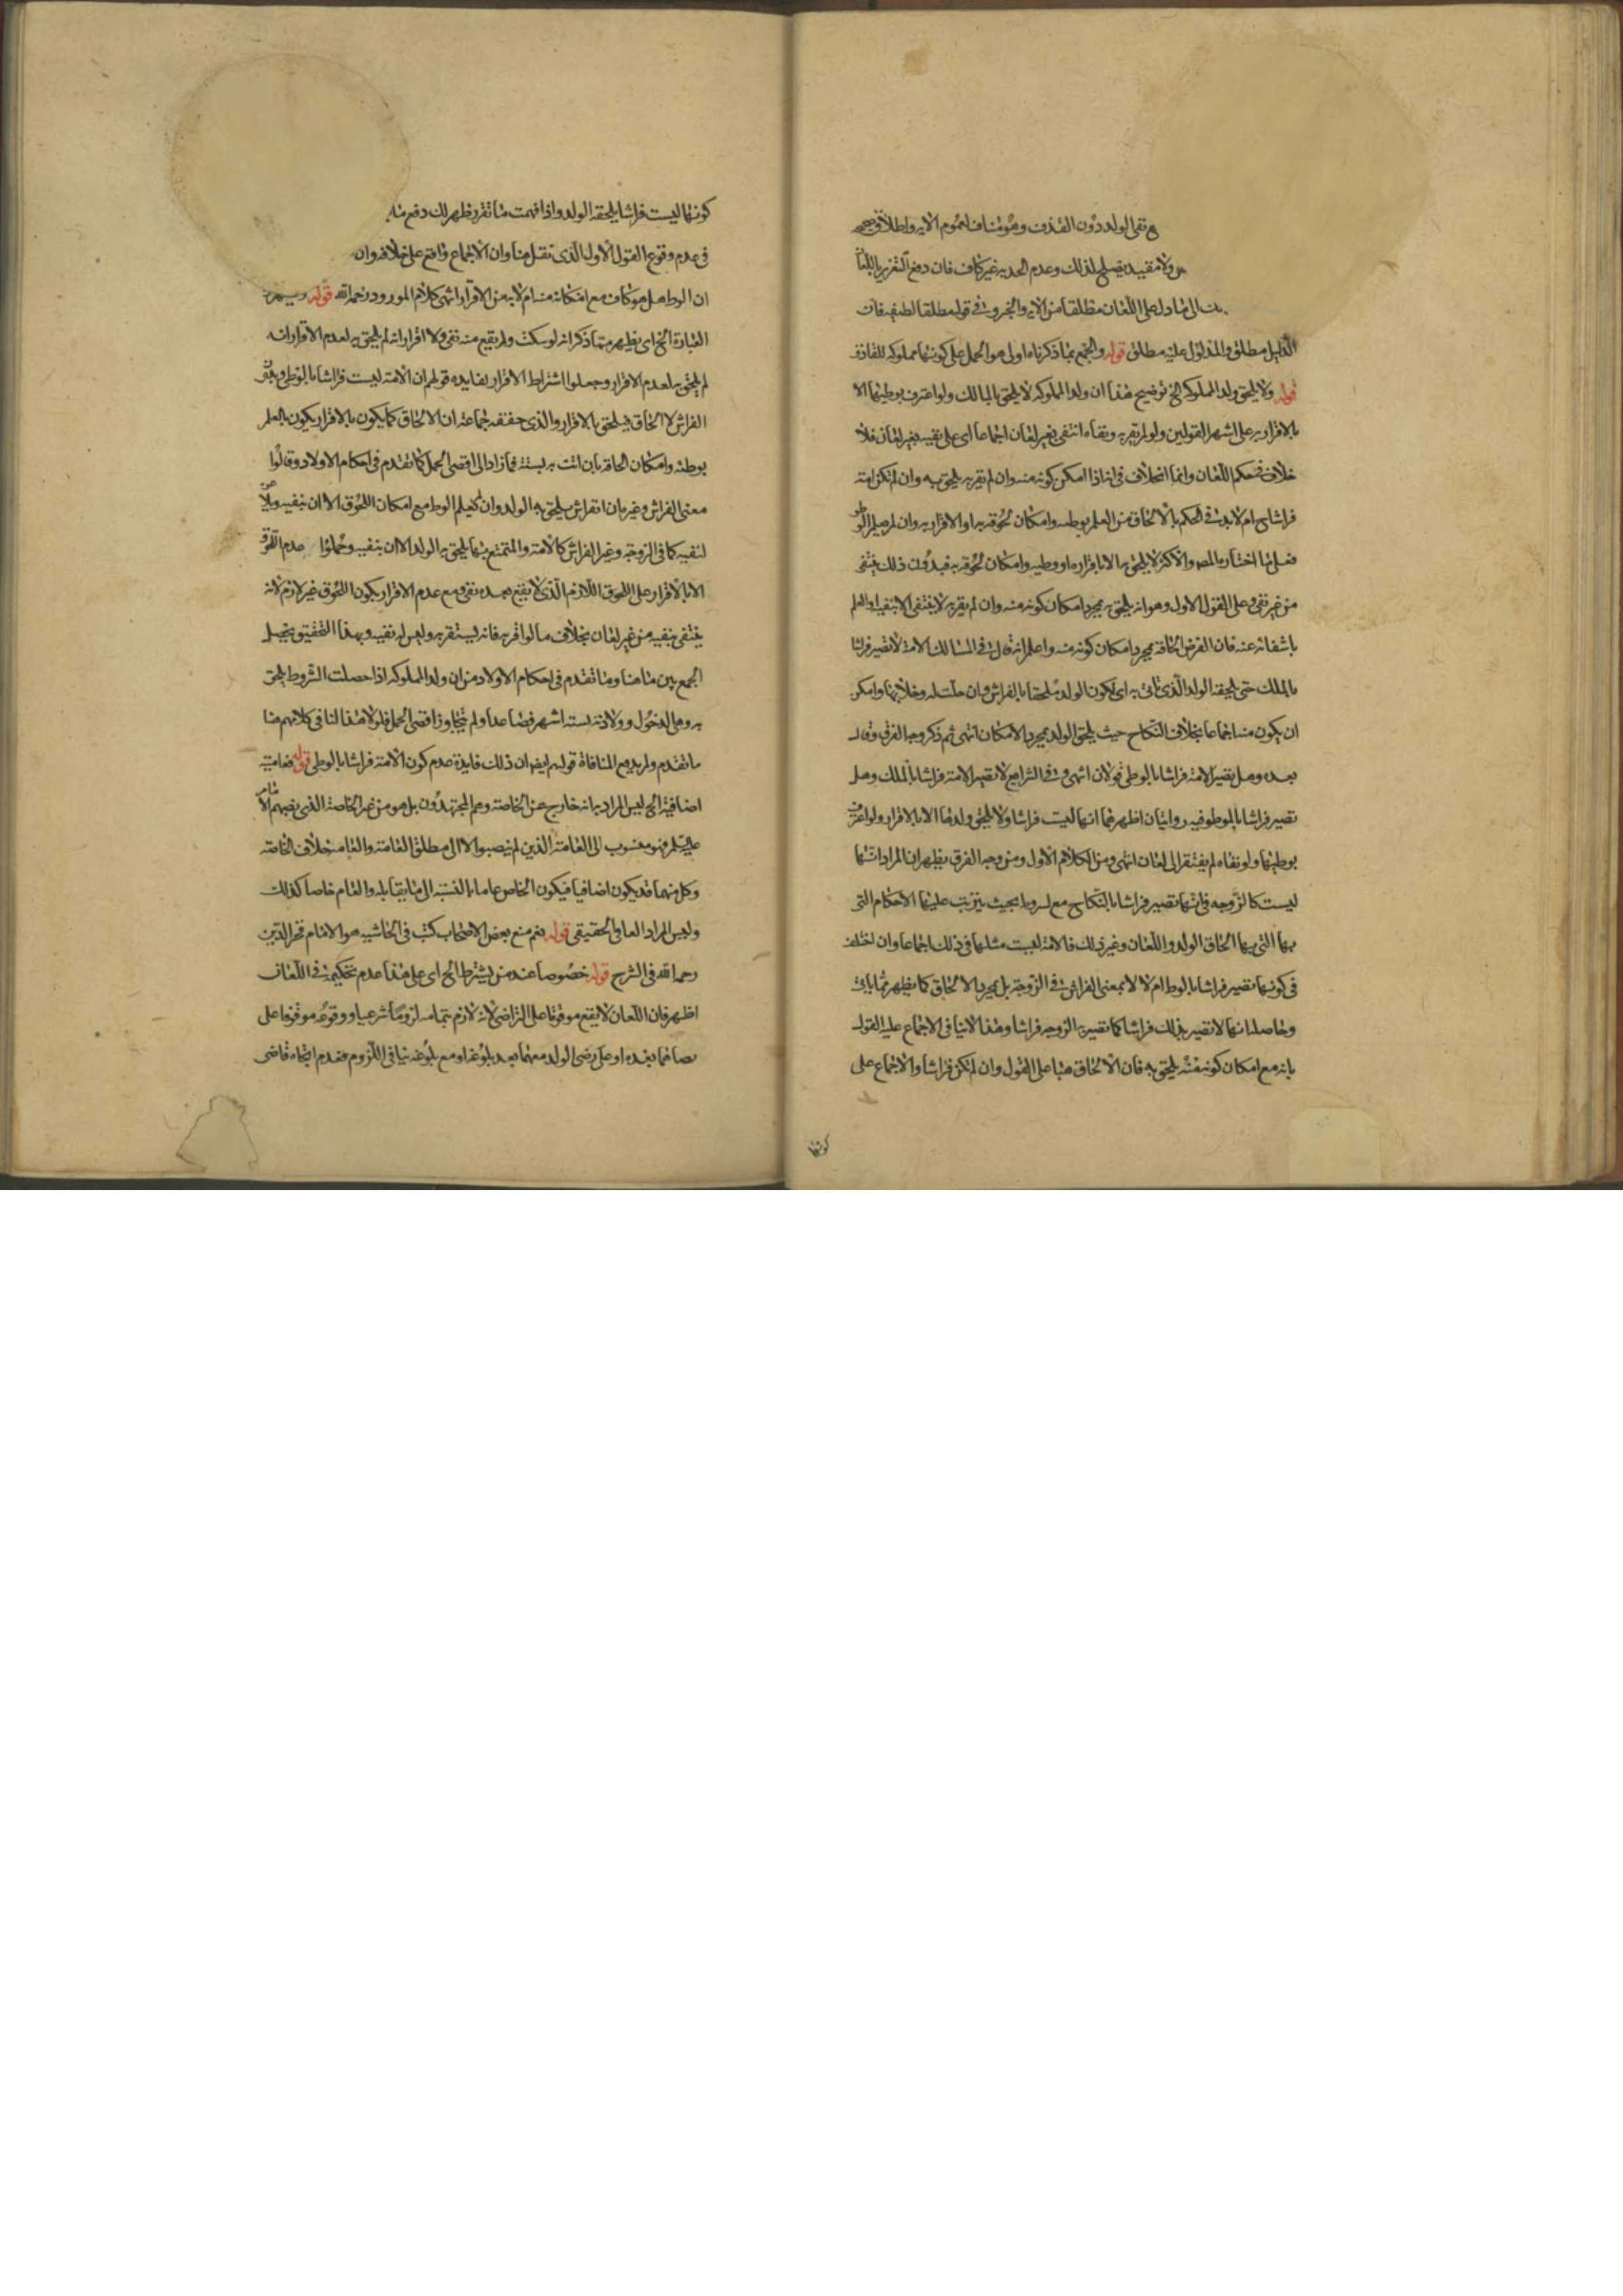 مع نفى الولد دون القذف وهو مناف لعموم الايه واطلاق صحيح
ولا مقيد يصلح لذلك وعدم الحد به غير كاف فان دفع التعزير باللعان
الى ما دل على اللعان مطلقا من الايه والخبر وفى قوله مطلقا لطيفه فان
الدليل مطلق والمدلول عليه مطلق قوله والجمع بما ذكرناه اولى هو الحمل على كونها مملوكه للقاذف
قوله ولا يلحق ولد المملوكه الخ توضيح هذا ان ولد المملوكه لا يلحق بالمالك ولو اعترف بوطيها الا
بالاقرار به على اشهر القولين ولو لم يقر به ونفاه انتفى بغير لعان اجماعا اى على نفيه بغير لعان فلا
خلاف فى حكم اللعان وانما الخلاف فى انه اذا امكن كونه منه وان لم يقر به يلحق به وان لم تكن امته
فراشا ام لا بد فى الحكم بالالحاق من العلم بوطئه وامكان لحوقه به او الاقرار به وان لم يعلم الوطو
فعلى ما اختاره المص والاكثر لا يلحق به الا باقراره او وطيه وامكان لحوقه به فبدون ذلك ينتفى
من غير نفى وعلى القول الاول وهو انه يلحق به بمجرد امكان كونه منه وان لم يقر به لا ينتفى الا بنفيه او العلم
بانتفائه عنه فان الفرض الحاقه بمجرد امكان كونه منه واعلم انه قال فى المسالك الامة لا تصير فراشا
بالملك حتى يلحقه الولد الذى تاتى به اى لكون الولد ملحقا بالفراش وان حلت له وخلا بها وامكن
ان يكون منه اجماعا بخلاف النكاح حيث يلحق الولد بمجرد الامكان انتهى ثم ذكر وجه الفرق وقال
بعده وهل تصير الامة فراشا بالوطى قولان انتهى وفى الشرايع لا تصير الامة فراشا بالملك وهل
تصير فراشا بالوطو فيه روايتان اظهرهما انها ليست فراشا ولا يلحق ولدها الا بالاقرار ولو اعترف
بوطيها ولو نفاه لم يفتقر الى لعان انتهى ومن الكلام الاول ومن وجه الفرق يظهر ان المراد انها
ليست كالزوجه فانها تصير فراشا بالنكاح مع بحيث يترتب عليها الاحكام التى
بها التى بها الحاق الولد واللعان وغير ذلك فالامة ليست مثلها فى ذلك اجماعا وان اختلف
فى كونها تصير فراشا بالوطء ام لا لا بمعنى الفراش فى الزوجة بل بمجرد الالحاق كما يظهر مما ياتى
وحاصله انها لا تصير بذلك فراشا كما تصير به الزوجه فراشا وهذا لا ينافى الاجماع عليه القول
بانه مع امكان كونه منه يلحق به فان الالحاق هنا على القول وان لم تكن فراشا والاجماع على
كونها
كونها ليست فراشا يلحقه الولد واذا فهمت ما تقرر ظهر لك دفع
فى عدم وقوع القول الاول الذى نقل هنا وان الاجماع واقع على خلافه وان
ان الوطء هل هو كاف مع امكانه منه ام لا بد من الاقرار انتهى كلام المورود رحمه الله قوله
العبارة الخ اى يظهر مما ذكر انه لو سكت ولم يقع منه نفى ولا اقرار انه لم يلحق به لعدم الاقرار انه
لم يلحق به لعدم الاقرار وجعلوا اشتراط الاقرار لفايده قولهم ان الامة ليست فراشا بالوطى
الفراش لا الحاق فيلحق بالاقرار والذى حققه جماعة ان الالحاق كما يكون بالاقرار يكون بالعلم
بوطئه وامكان الحاقه بان اتت به لستة فما زاد الى اقصى الحمل كما تقدم فى احكام الاولاد وقالوا
معنى الفراش وغيره ان الفراش يلحق به الولد وان لم يعلم الوطء مع امكان اللحوق الا ان ينفيه
لنفيه كما فى الزوجة وغير الفراش كالامة والمتمتع بها يلحق به الولد الا ان ينفيه وحملوا عدم اللحوق
الا بالاقرار على اللحوق اللازم الذى لا يقع بعده نفى ومع عدم الاقرار يكون اللحوق غير لازم لانه
ينتفى بنفيه من غير لعان بخلاف ما لو اقر به فانه يستقر به وليس له نفيه وبهذا التحقيق يحصل
الجمع بين ما هنا وما تقدم فى احكام الاولاد من ان ولد المملوكه اذا حصلت الشروط يلحق
به وهى الدخول وولادته لستة اشهر فصاعدا ولم يتجاوز اقصى الحمل فلولا هذا لنافى كلامهم هنا
ما تقدم ولم يدفع المنافاة قولهم ايضا ان ذلك فايدة عدم كون الامة فراشا بالوطى قوله فعاميته
اضافية الخ ليس المراد به انه خارج عن الخاصة وهم المجتهدون بل هو من غير الخاصة الذى نصبهم الامام
عليه السلم فهو منسوب الى العامة الذين لم ينصبوا لا الى مطلق العامة والعامه خلاف الخاصه
وكل منهما قد يكون اضافيا فيكون الخاص عاما بالنسبة الى ما يقابله والعام خاصا كذلك
وليس المراد العامى الحقيقى قوله نعم منع بعض الاصحاب كتب فى الحاشيه هو الامام فخر الدين
رحمه الله فى الشرح قوله خصوصا عند من يشترط الخ اى على هذا عدم تحكيمه فى اللعان
اظهر فان اللعان لا يقع موقوفا على التراضى لانه لازم بتمامه لزوما شرعيا ووقوعه موقوفا على
رضاهما بعده او على رضى الولد معهما بعد بلوغه او مع بلوغه ينافى اللزوم فعدم ايجاد قاضى